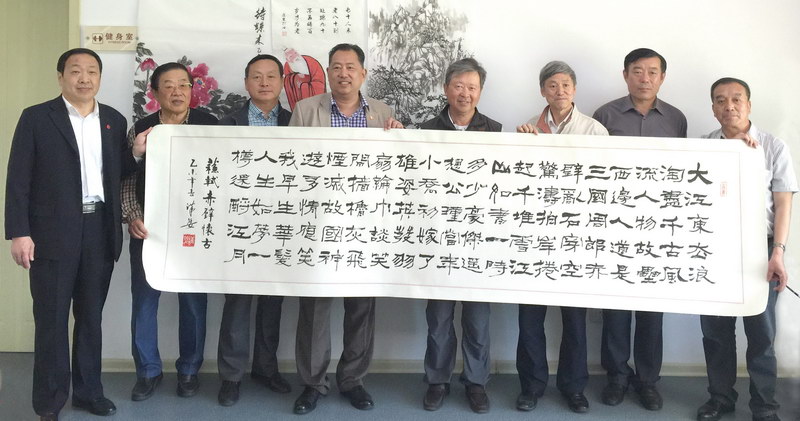 健身室
大江東去浪
淘盡千古風
流人物故壘
西邊人道是
三國周郎赤
壁亂石穿空
驚濤拍岸捲
起千堆雪江
山如畫一時
多少豪傑遙
想公瑾當年
小喬初嫁了
雄姿英發羽
扇綸巾談笑
間檣櫓灰飛
煙滅故國神
遊多情應笑
我早生華髮
人生如夢一
樽還酹江月
蘇軾赤壁懷古